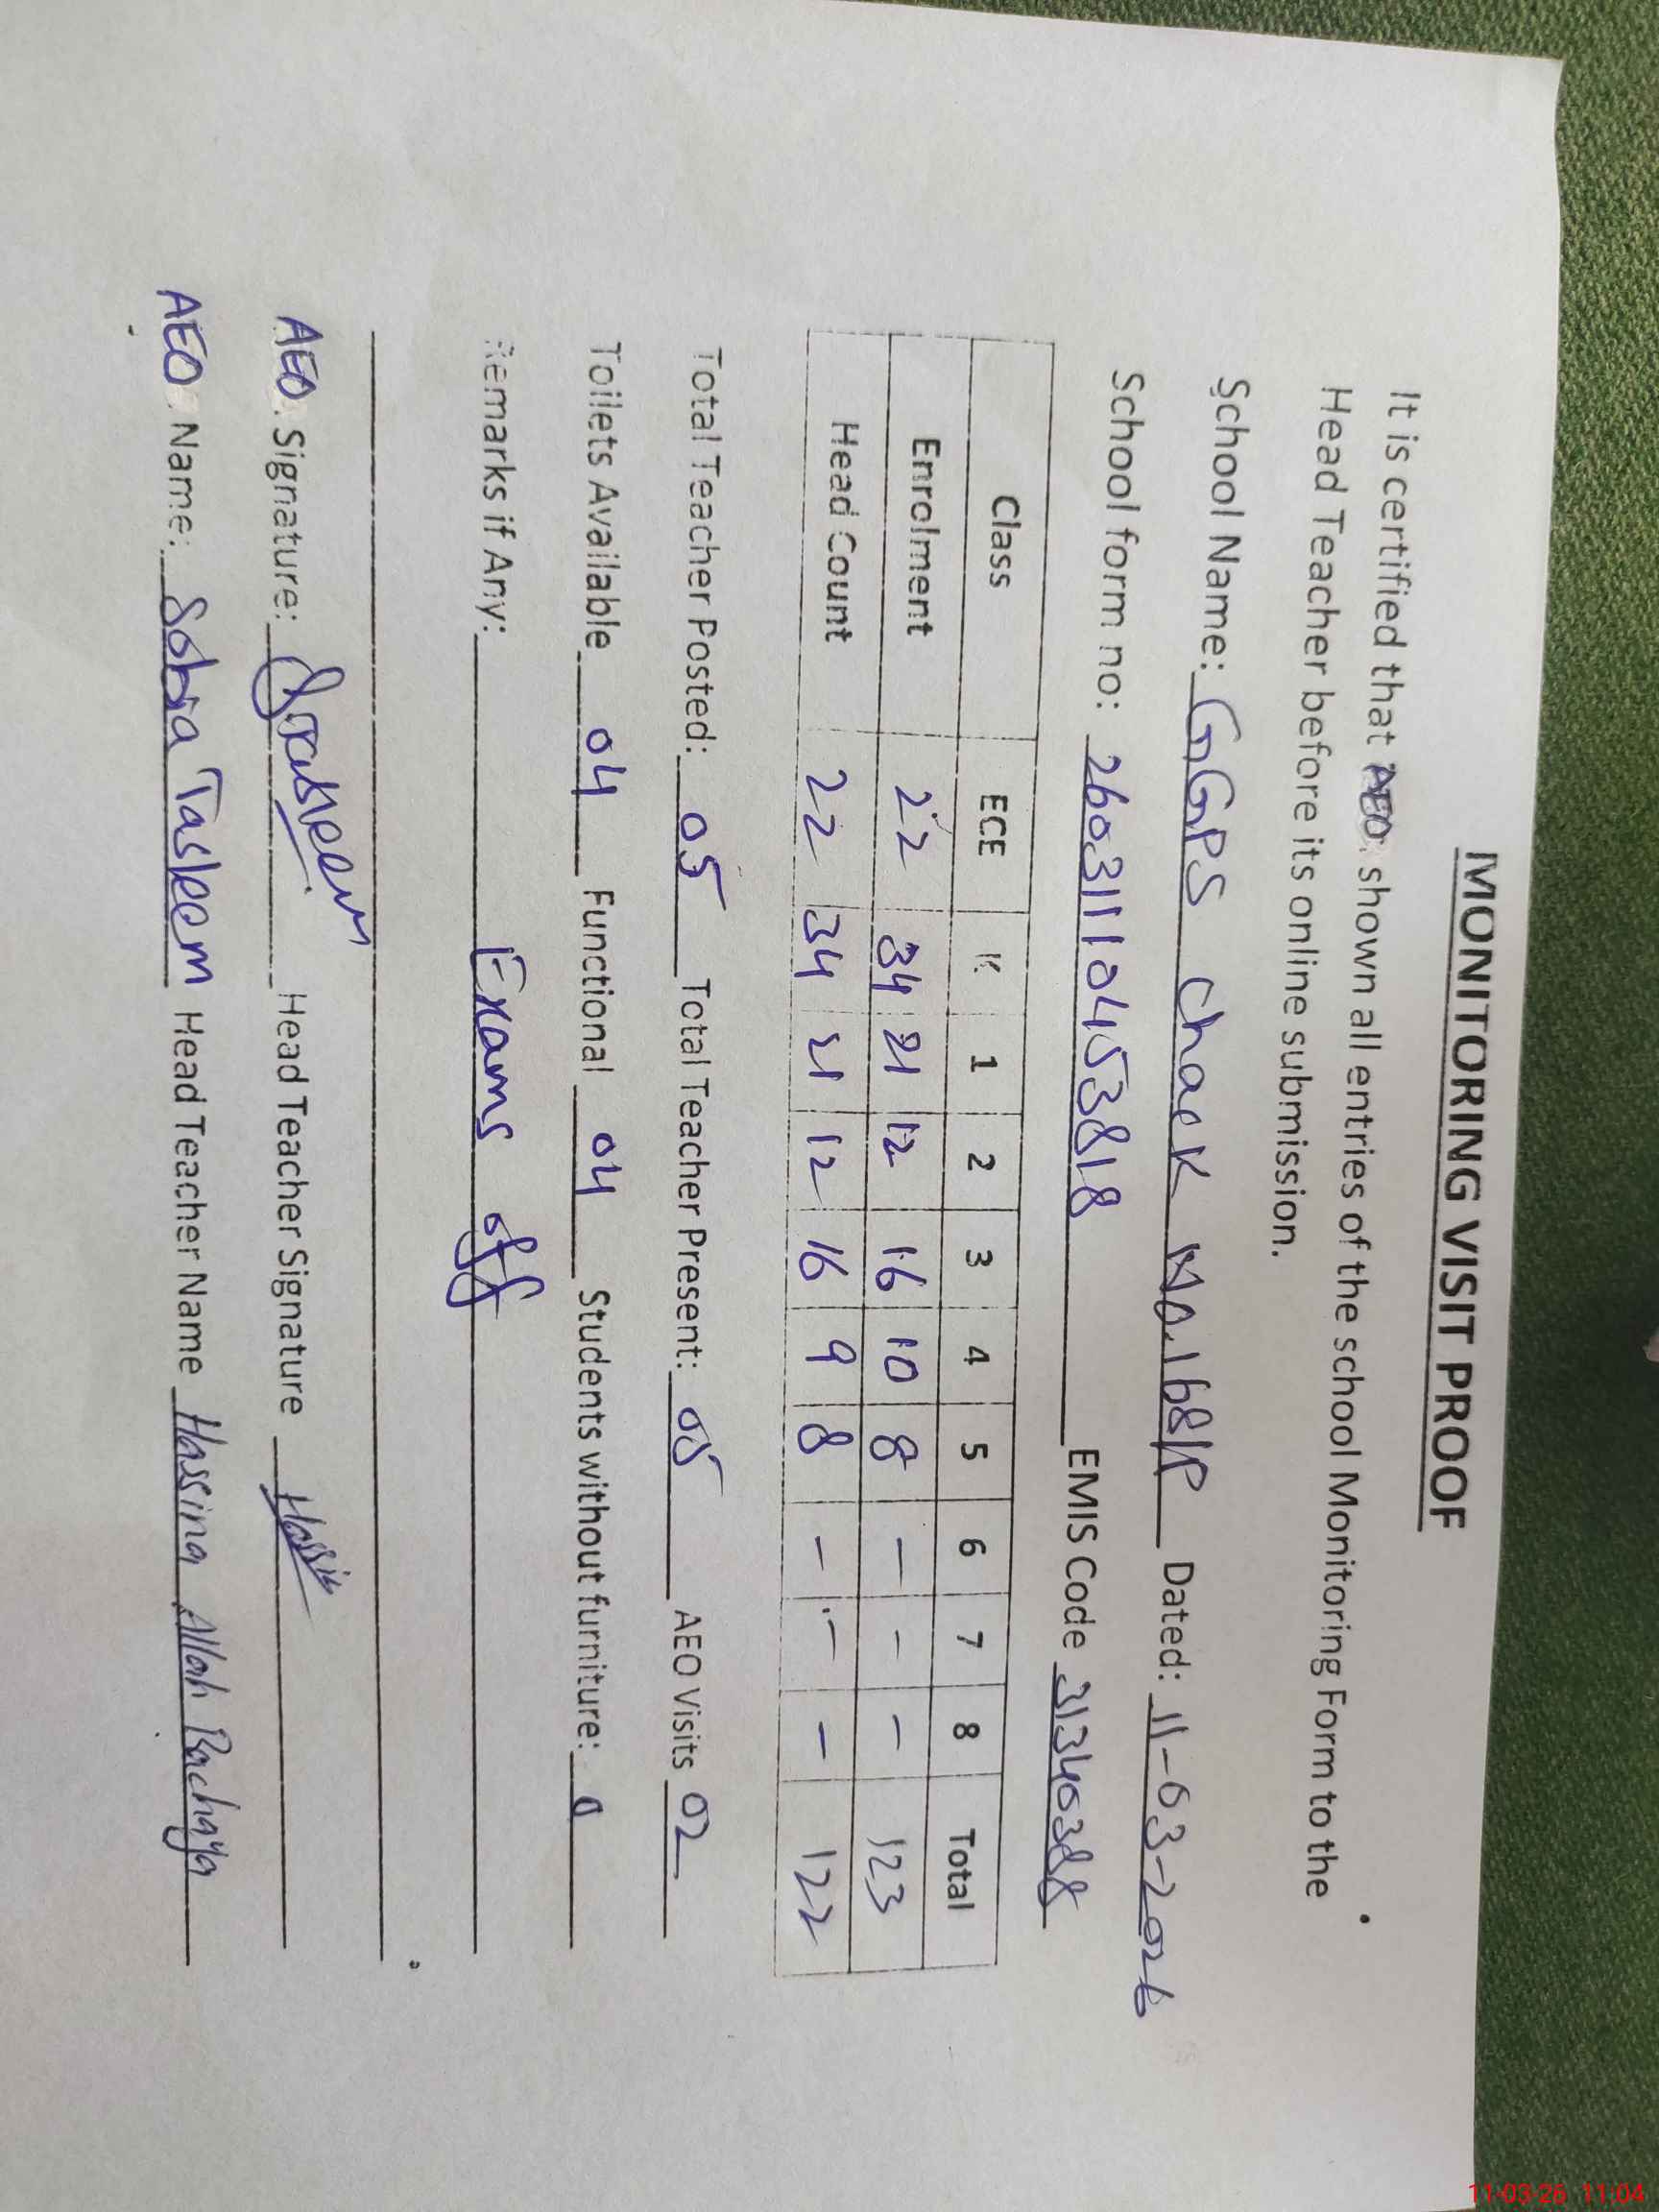 MONITORING VISIT PROOF
It is certified that AEO. shown all entries of the school Monitoring Form to the
Head Teacher before its online submission.
School Name: GGPS Chack No.168/P Dated: 11-03-2026
School form no: 26031110453818 EMIS Code 31340388
Class ECE K 1 2 3 4 5 6 7 8 Total
Enrolment 22 34 21 12 16 10 8 - - - 123
Head Count 22 34 21 12 16 9 8 - - - 122
Total Teacher Posted: 05 Total Teacher Present: 05 AEO Visits 02
Toilets Available 04 Functional 04 Students without furniture: 0
Remarks if Any: Exams off
AEO. Signature: Stasleem Head Teacher Signature
AEO. Name: Sobia Tasleem Head Teacher Name Hassina Allah Bachaya
11-03-26 11:04